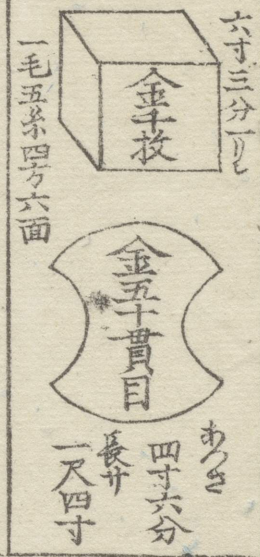 六寸三分一りと
金千枚
一毛五糸四方六面
金五十貫目
あつさ
四寸六分
長サ
一尺四寸